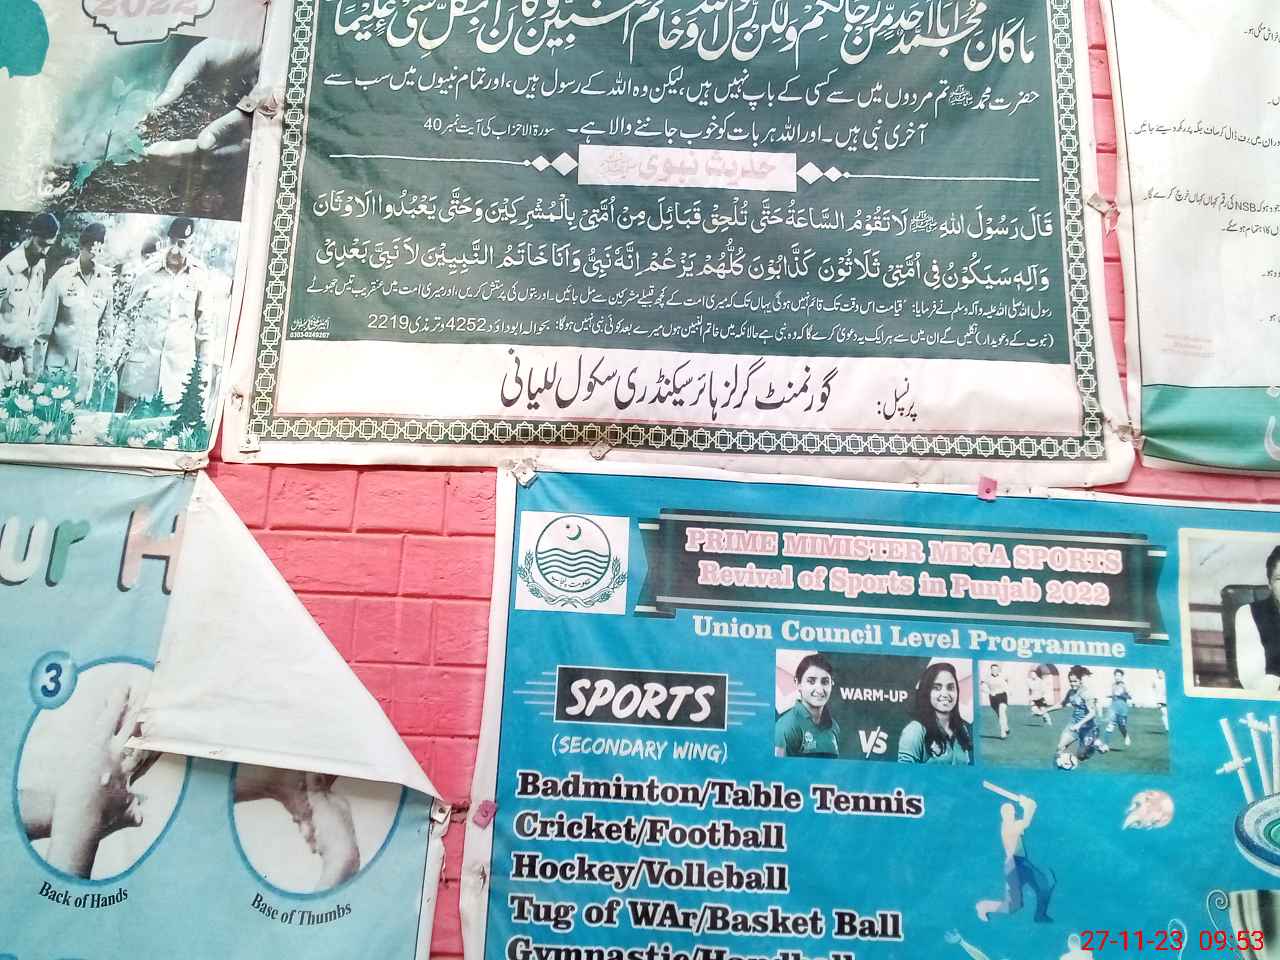 2022
صفائی
ما كان محمد ابا احد من رجالكم ولكن رسول الله وخاتم النبيين وكان الله بكل شيء عليما
حضرت محمد ﷺ تم مردوں میں سے کسی کے باپ نہیں ہیں، لیکن وہ اللہ کے رسول ہیں، اور تمام نبیوں میں سب سے
آخری نبی ہیں۔ اور اللہ ہر بات کو خوب جاننے والا ہے۔ سورۃ الاحزاب کی آیت نمبر 40
حدیث نبوی ﷺ
قَالَ رَسُوْلَ اللهِ ﷺ لَا تَقُوْمُ السَّاعَةُ حَتَّى تُلْحِقَ قَبَائِلَ مِنْ اُمَّتِیْ بِالْمُشْرِكِيْنَ وَحَتَّى يَعْبُدُوا الَاوْثَانَ
وَاَلِہٖ سَيَكُوْنُ فِی اُمَّتِیْ ثَلَاثُوْنَ كَذَّابُوْنَ كُلُّهُمْ يَزْعُمْ اِنَّهٗ نَبِیٌّ وَاَنَا خَاتَمُ النَّبِيِيْنَ لَا نَبِیَّ بَعْدِیْ
رسول اللہ صلی اللہ علیہ وآلہ وسلم نے فرمایا: قیامت اس وقت تک قائم نہیں ہوگی یہاں تک کہ میری امت کے کچھ قبیلے مشرکین سے مل جائیں۔ اور بتوں کی پرستش کریں، اور میری امت میں عنقریب تیس جھوٹے
(نبوت کے دعویدار) نکلیں گے ان میں سے ہر ایک یہ دعویٰ کرے گا کہ وہ نبی ہے حالانکہ میں خاتم النبیین ہوں میرے بعد کوئی نبی نہیں ہوگا: بحوالہ ابوداؤد 4252 و ترمذی 2219
0303-0249207
پرنسپل: گورنمنٹ گرلز ہائر سیکنڈری سکول للیانی
NSB کی رقم کہاں کہاں خرچ کرے گا۔
ur H
3
Back of Hands
Base of Thumbs
حکومت پنجاب
PRIME MIMISTER MEGA SPORTS
Revival of Sports in Punjab 2022
Union Council Level Programme
SPORTS
(SECONDARY WING)
WARM-UP
VS
Badminton/Table Tennis
Cricket/Football
Hockey/Volleball
Tug of WAr/Basket Ball
Gymnastic/Handball
27-11-23 09:53